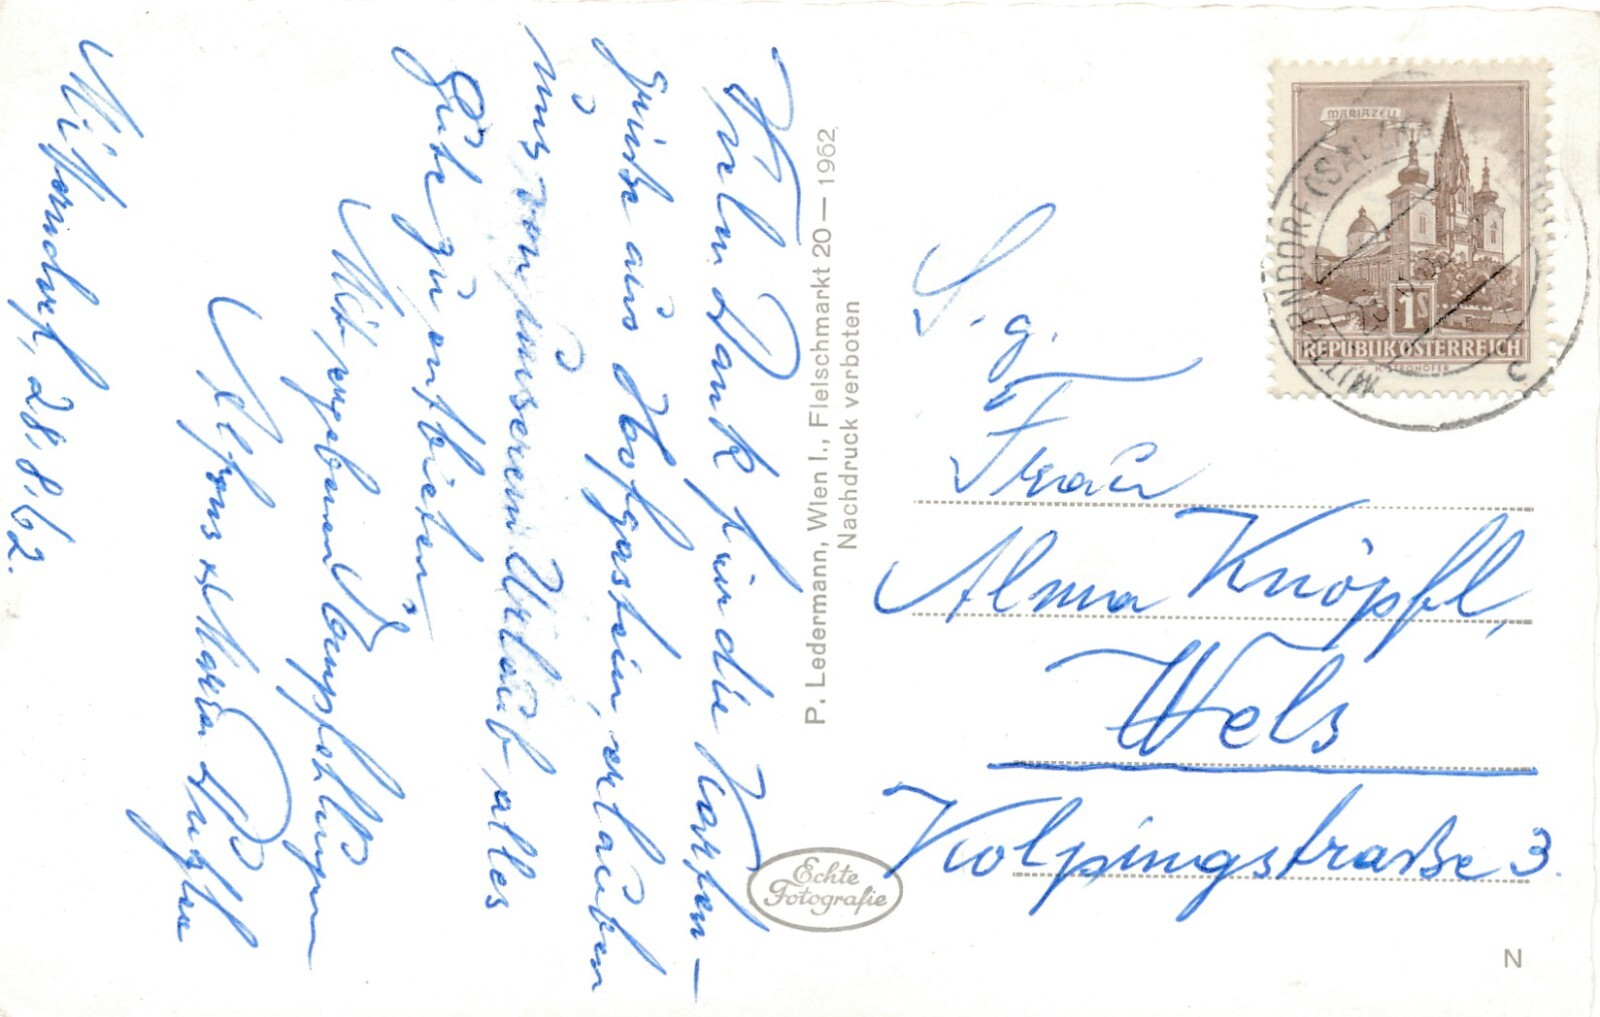 Vielen Dank für die Karten-
grüße aus Hofgastein, erlauben
uns von unserem Urlaub alles
Gute zu entbieten
Mit ergebenen Empfehlungen
Alfons u. Maria
Mitterndorf, 28.8.62.
P. Ledermann, Wien I., Fleischmarkt 20 — 1962
Nachdruck verboten
Echte
Fotografie
MARIAZELL
1S
REPUBLIK ÖSTERREICH
MITTERNDORF (SAL
S. g.
Frau
Alma Knöpfl,
Wels
Kolpingstraße 3.
N